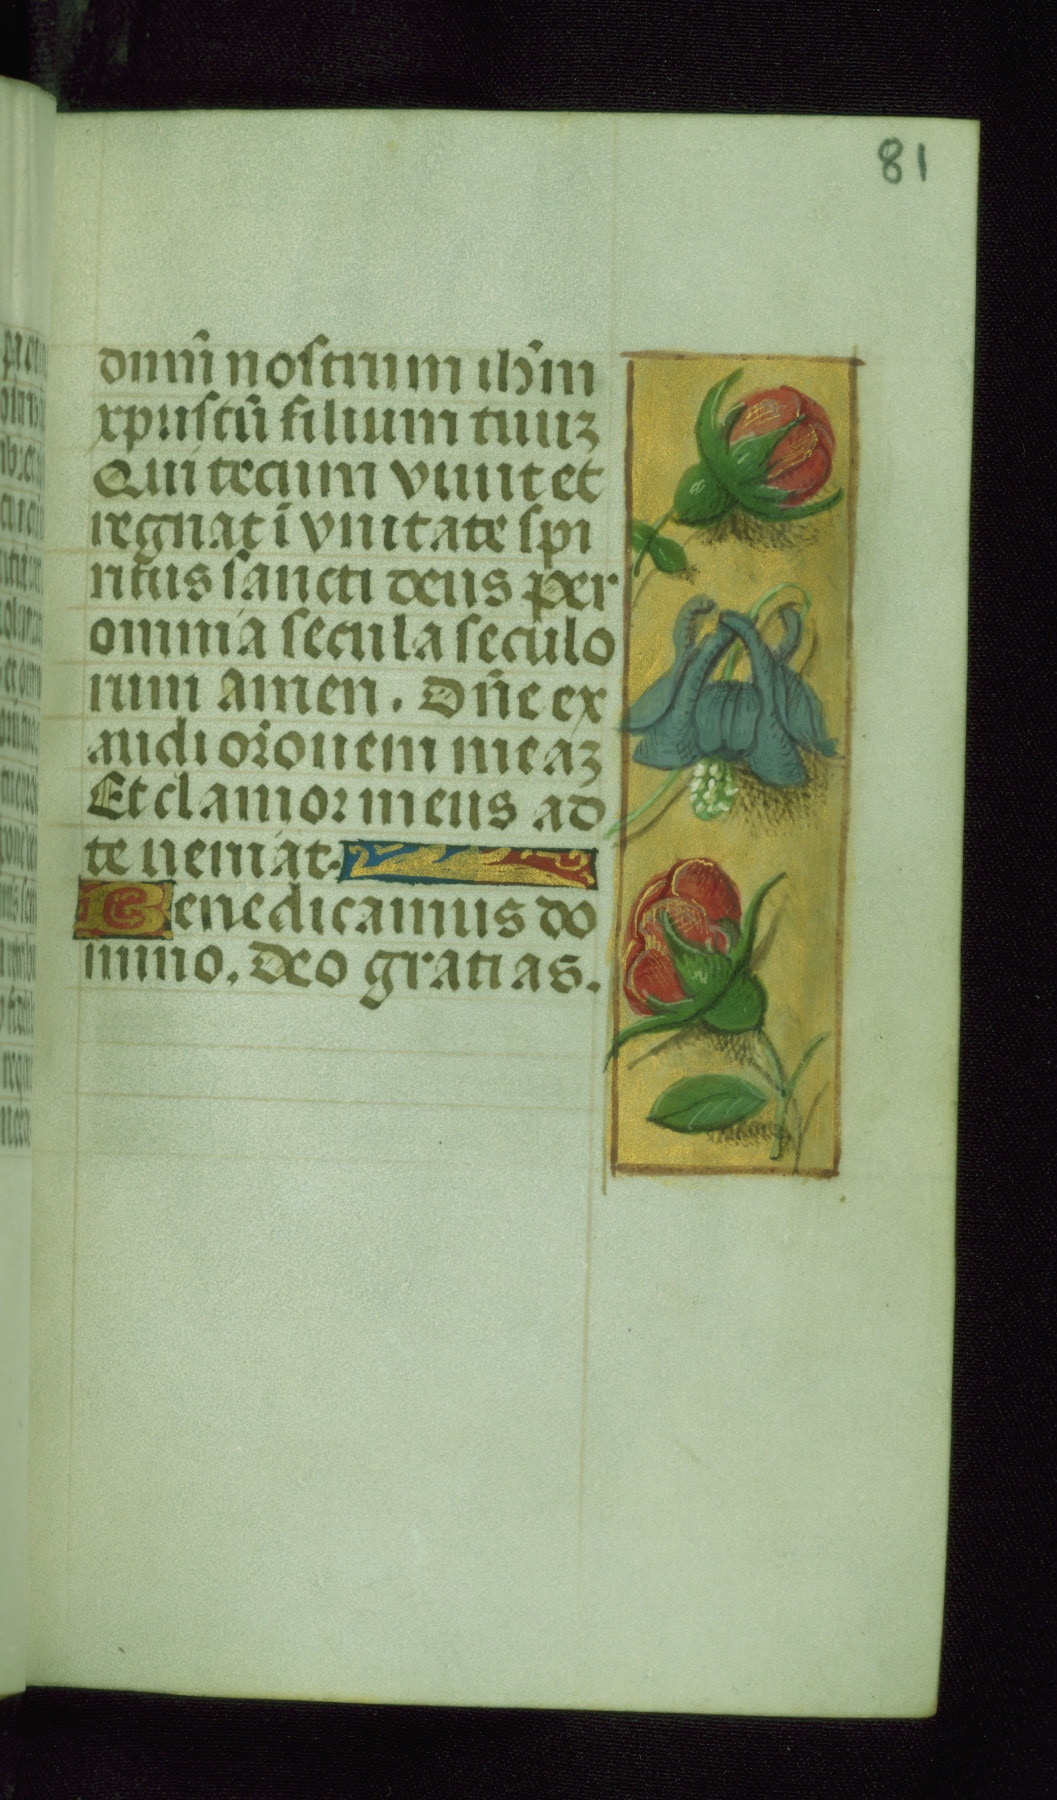 81
dnm̄ nostrum ih̄m
xpistū filium tuuz
Qui tecum viuit et
regnat ī vnitate spi
ritus sancti deus per
omnia secula seculo
rum Amen. Dn̄e ex
audi or̄onem meaz
Et clamor meus ad
te ueniat.
Benedicamus do
mino. Deo gratias.